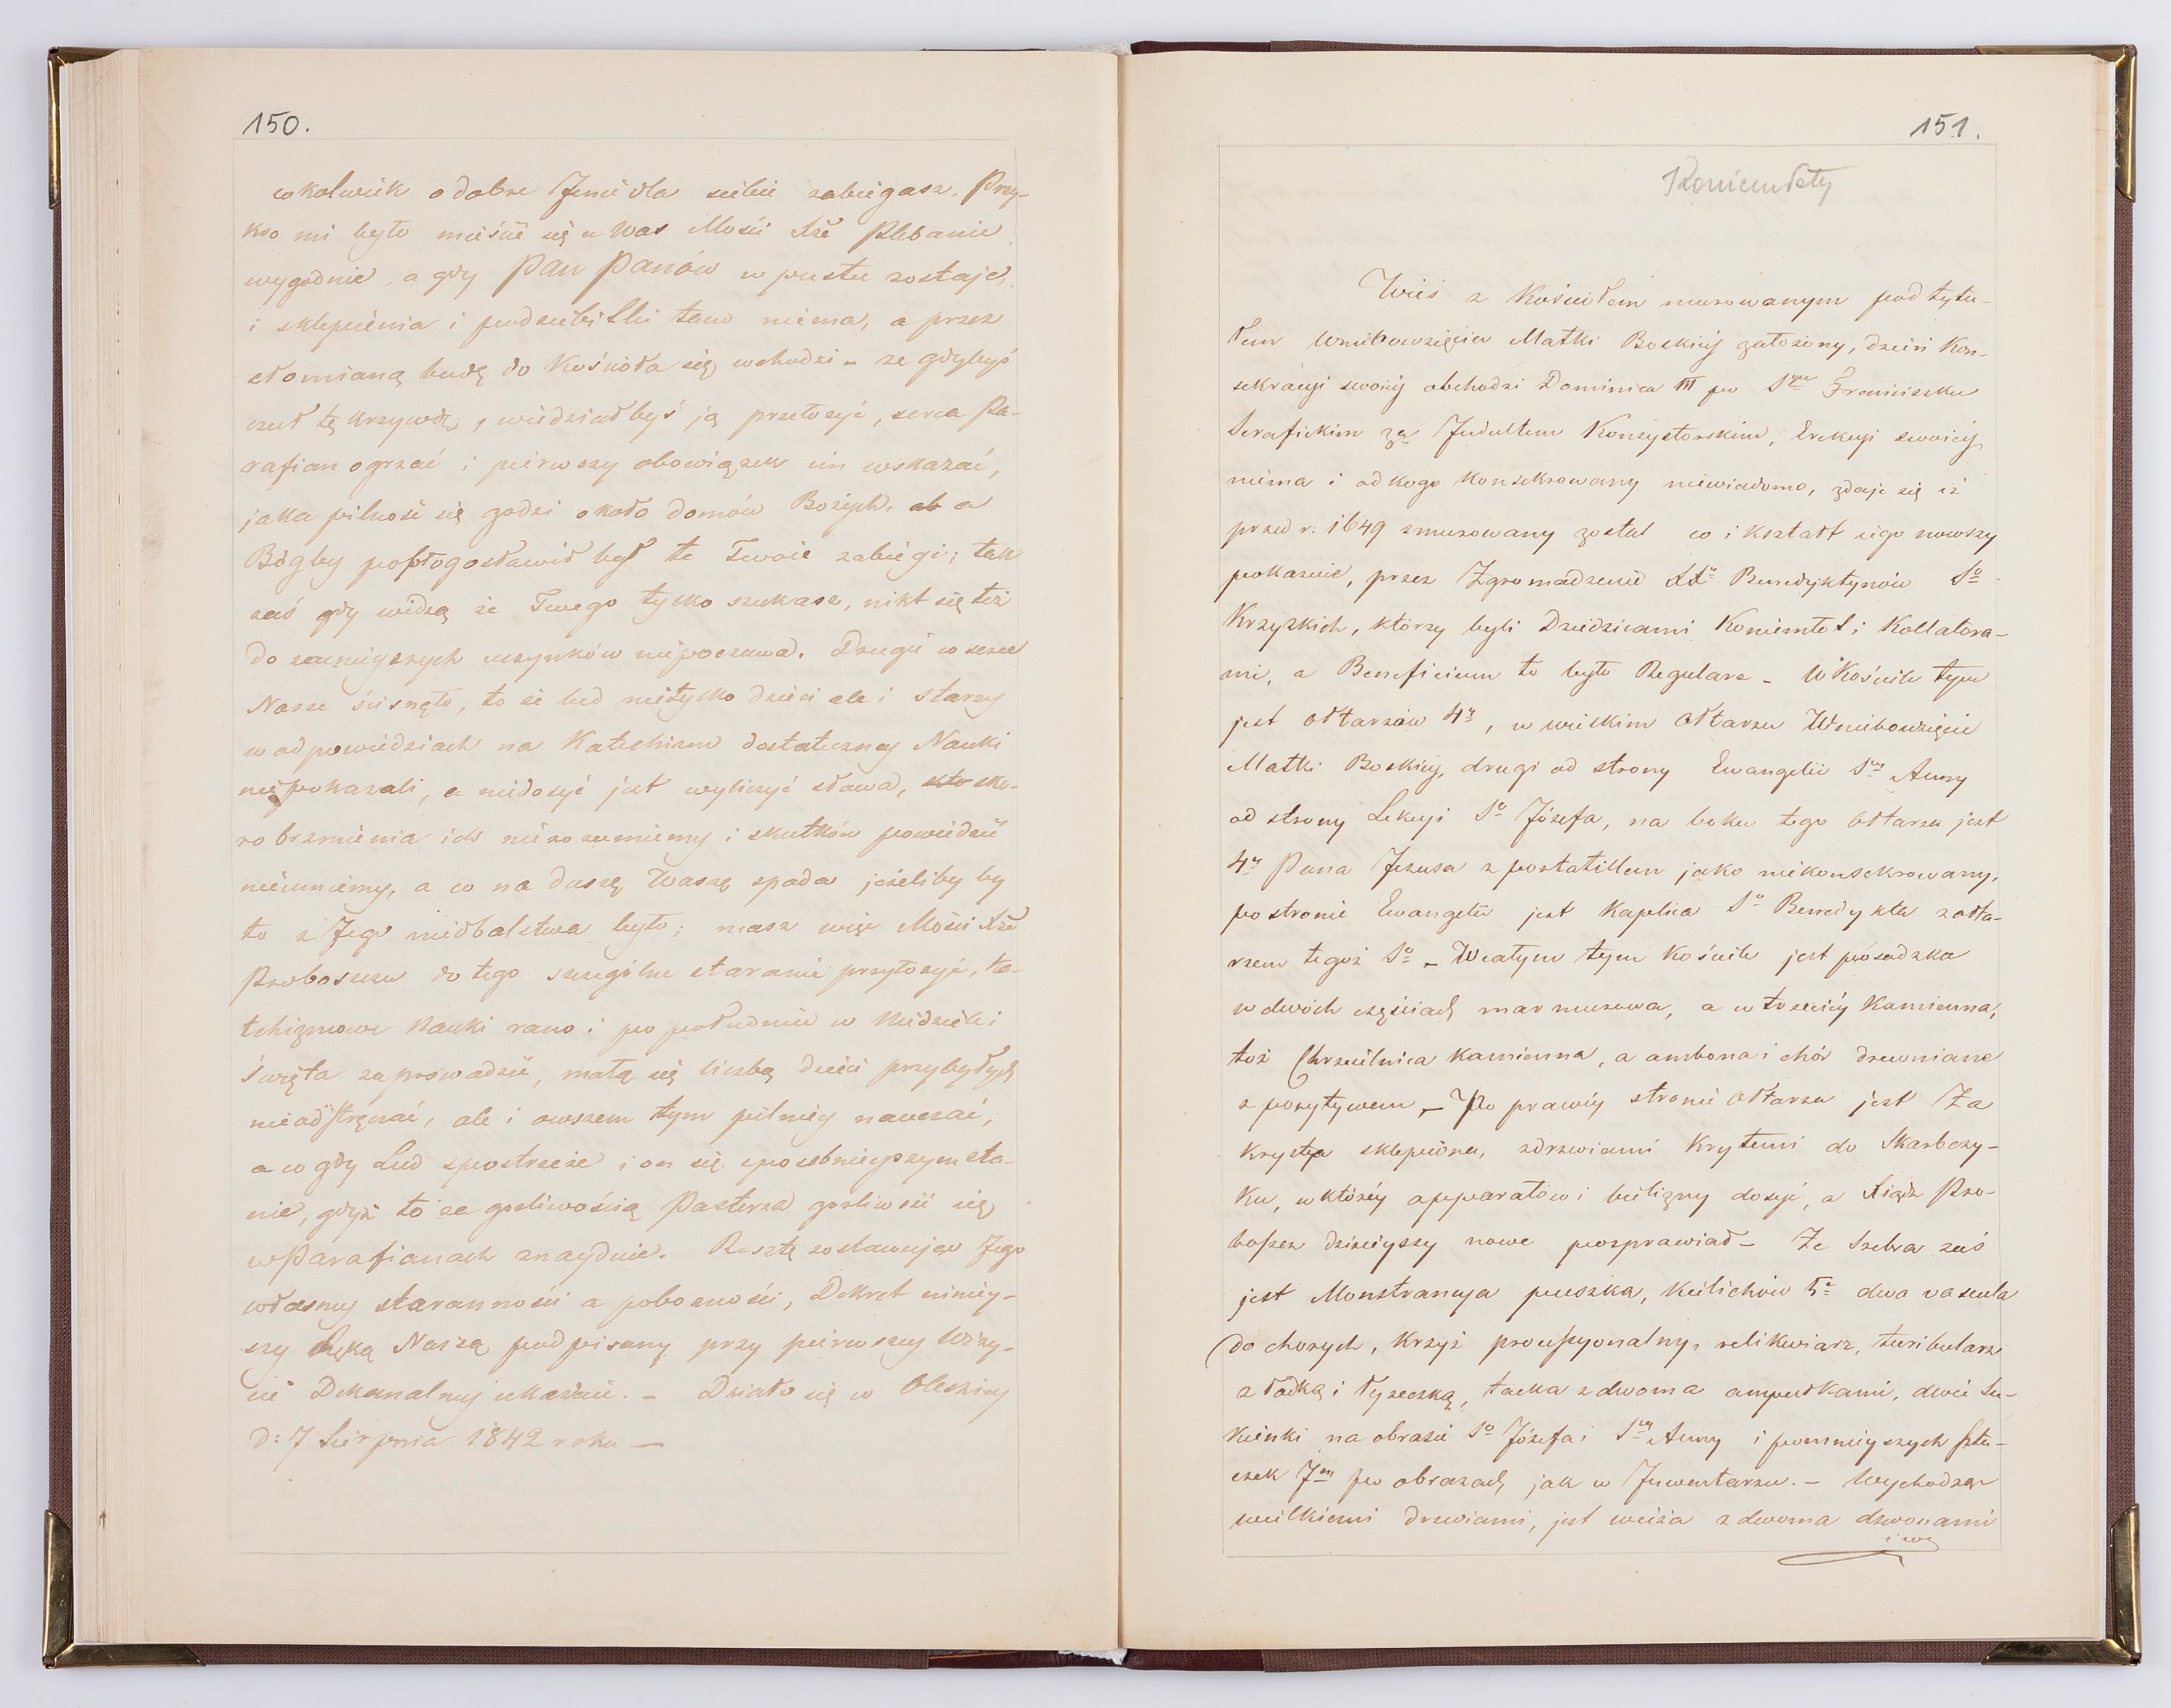 150.
cokolwiek o dobre Imie dla siebie zabiegasz. Przy-
kro mi było mieścić się u Was Mości Xże Plebanie
wygodnie, a gdy Pan Panów w pustu zostaje,
i sklepienia i podsiebitki tam niema, a przez
słomianą budę do Kościoła się wchodzi – że gdybyś
czuł tę krzywdę, wiedziałbyś ją przełożyć, serca Pa-
rafian ogrzać i pierwszy obowiązek im wskazać,
jaka pilność się godzi około domów Bożych, ab a
Bóg by pobłogosławił był te Twoie zabiegi; tak
zaś gdy widzą że Twego tylko szukasz, nikt się też
do zacnieyszych uczynków niepoczuwa. Drugie co serce
Nasze ścisnęło, to że lud nietylko dzieci ale i starzy
w odpowiedziach na Katechizm dostateczney Nauki
niepokazali, a niedosyć jest wyliczyć słowa, sko-
ro brzmienia ich nierozumiemy i skutków powiedzieć
nieumiemy, a co na duszę Waszę spada jeżeliby by
to z Jego niedbalstwa było; masz więc Mości Xże
Proboszczu do tego szczególne staranie przyłożyć, Ka-
techizmowe Nauki rano i po południu w Niedziele i
Święta zaprowadzić, małą się liczbą dzieci przybyłych
nieodstręczać, ale i owszem tym pilniey nauczać,
a co gdy Lud spostrzeże i on się sposobnieyszym sta-
nie, gdyż to za gorliwością Pasterza gorliwość się
w Parafianach znayduie. Resztę zostawując Jego
własney staranności a pobożności, Dekret niniey-
szy Ręką Naszą podpisany przy pierwszey Wizy-
cie Dekanalnej ukażecie. – Działo się w Oleśnicy
d: 7 Sierpnia 1842 roku —
151.
Koniemłoty
Wieś z Kościołem murowanym pod tytu-
łem Wniebowzięcia Matki Boskiéj założony, dzień Kon-
sekracyi swoiéj obchodzi Dominica III po Stym Franciszku
Serafickim za Indultem Konsystorskim, Erekcyi swoiéj
niema i od kogo Konsekrowany niewiadomo, zdaje się iż
przed r: 1649 zmurowany został co i kształt iego nowszy
pokazuie, przez Zgromadzenie XXo Benedyktynów So
Krzyzkich, którzy byli Dziedzicami Koniemłot i Kollatora-
mi, a Beneficium to było Regulare – W Kościele tym
jest ołtarzów 4y, w wielkim Ołtarzu Wniebowzięcie
Matki Boskiéj, drugi od strony Ewangelii Sey Anny
od strony Lekcyi So Józefa, na boku tego Ołtarza jest
4y Pana Jezusa z portatillem jako niekonsekrowany,
po stronie Ewangelii jest Kaplica So Benedykta z ołta-
rzem tegoż So – W całym tym Kościele jest posadzka
w dwóch częściach marmurowa, a w trzeciéj Kamienna,
toż Chrzcielnica kamienna, a ambona i chór drewniane
z pozytywem, – Po prawéj stronie Ołtarza jest Za
krystya sklepiona, z drzwiami Krytemi do Skarbczy-
ku, w któréy apparatów i bielizny dosyć, a Xiądz Pro-
boszcz dzisieyszy nowe posprawiał – Ze Srebra zaś
jest Monstrancya puszka, Kielichów 5c dwa vascula
do chorych, Krzyż processyonalny, relikwiarz, turibularz
z łódką i łyżeczką, tacka z dwoma ampułkami, dwie Su-
kienki na obrazie So Józefa i Sey Anny i pomnieyszych sztu-
czek 7m po obrazach jak w Inwentarzu. – Wychodząc
wielkiemi drzwiami, jest wieża z dwoma dzwonami
i we